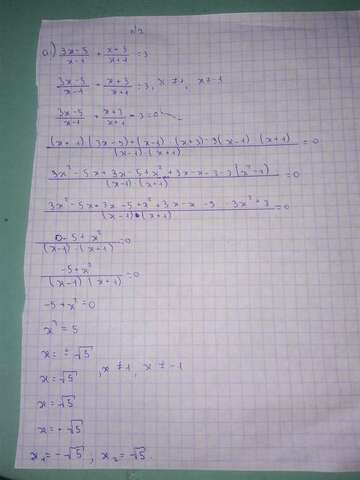 №2
а) (3x-5)/(x-1) + (x+3)/(x+1) = 3
(3x-5)/(x-1) + (x+3)/(x+1) = 3, x ≠ 1, x ≠ -1
(3x-5)/(x-1) + (x+3)/(x+1) - 3 = 0
((x+1)·(3x-5)+(x-1)·(x+3)-3(x-1)·(x+1))/((x-1)·(x+1)) = 0
(3x²-5x+3x-5+x²+3x-x-3-3(x²-1))/((x-1)·(x+1)) = 0
(3x²-5x+3x-5+x²+3x-x-3-3x²+3)/((x-1)·(x+1)) = 0
(0-5+x²)/((x-1)·(x+1)) = 0
(-5+x²)/((x-1)·(x+1)) = 0
-5+x² = 0
x² = 5
x = ±√5
x = √5, x ≠ 1, x ≠ -1
x = √5
x = -√5
x₁ = -√5, x₂ = √5